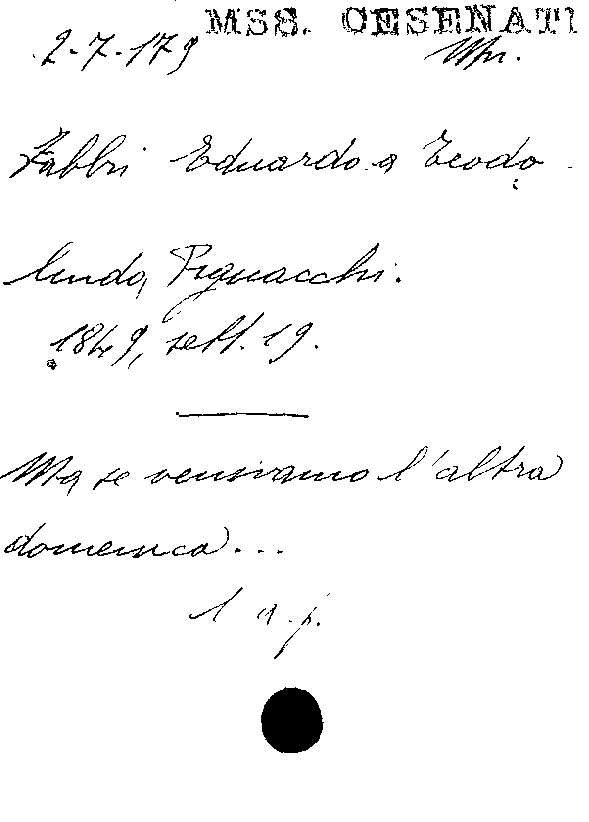 MSS. CESENATI
2-7-179
Fabbri Eduardo a Teodo
linda Pignacchi.
1849, sett. 19.
Ma se venivamo l'altra
domenica...
1 a.f.